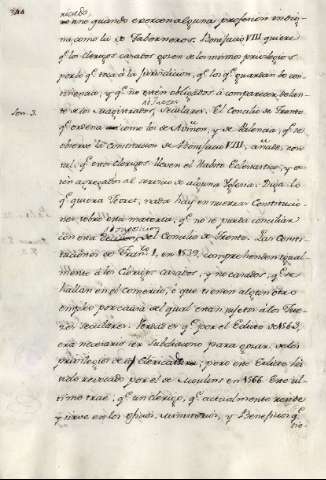 sino quando exercen alguna profesion indig-
na, como la de Taberneros. Bonifacio VIII quiere
q.e los Clerigos casados gozen de los mismos privilegios
por lo q.e toca á la jurisdiccion, q.e los q.e guardan la con-
tinencia, y q.e no estén obligados á comparecer delan-
te de los Magistrados Seculares. El Concilio de Trento,
q.e ordena como los de Aviñon, y de Palencia, q.e se
observe la Constitucion de Bonifacio VIII, añade, con
tal, q.e estos Clerigos lleven el Habito Eclesiastico, y es-
tén agregados al servicio de alguna Iglesia. Diga lo
q.e quiera Fevret, nada hay en nuestras Constitucio-
nes sobre esta materia, q.e no se pueda conciliar
con esta del Concilio de Trento. Las Consti-
tuciones de Fran.co I. en 1539 comprehenden igual-
mente á los Clerigos casados, y no casados, q.e se
hallan en el comercio, ó que tienen algun otro
empleo por causa del qual estan sujetos á los Jue-
ces Seculares. Verdad es q.e por el Edicto de 1563,
era necesario ser Subdiacono para gozar de los
privilegios de Clericatura; pero este Edicto há
sido revocado por el de Moulins en 1566. Este úl-
timo trae, q.e un clerigo, q.e actualmente reside
y sirve en los oficios, ministerios, y Beneficios q.e